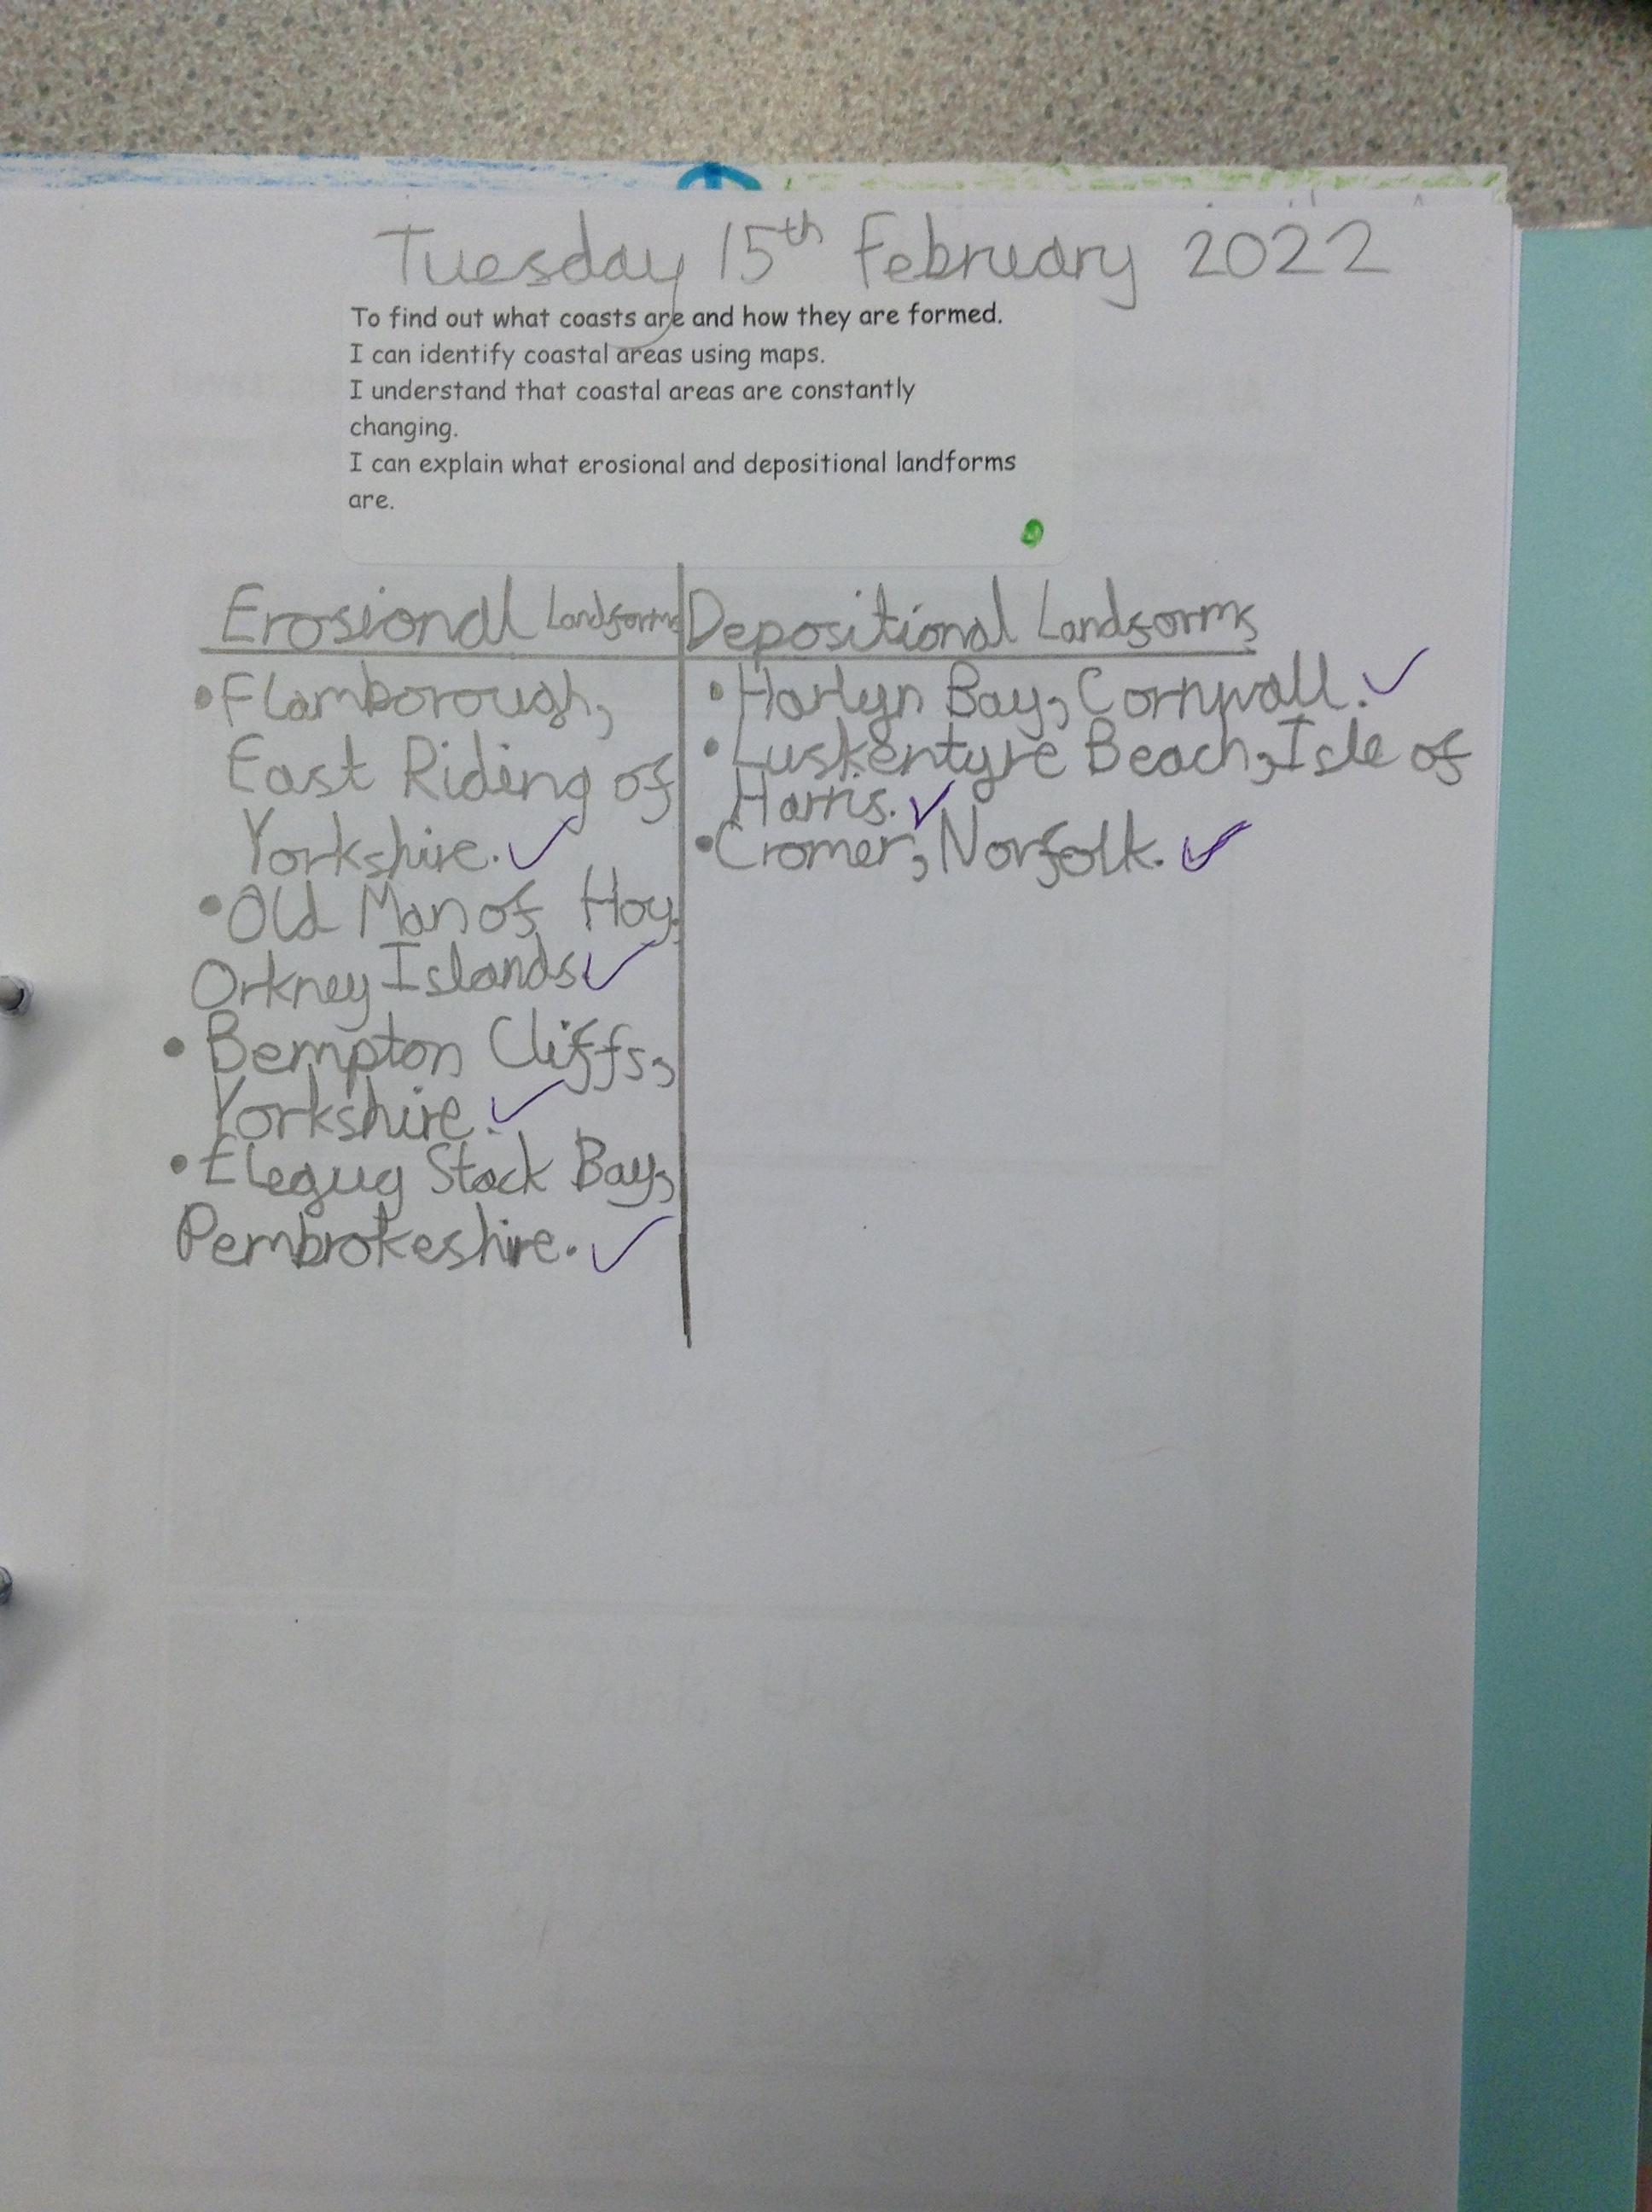 Tuesday 15th February 2022
To find out what coasts are and how they are formed.
I can identify coastal areas using maps.
I understand that coastal areas are constantly
changing.
I can explain what erosional and depositional landforms
are.
Erosional Landforms
• Flamborough,
East Riding of
Yorkshire.
• Old Man of Hoy,
Orkney Islands.
• Bempton Cliffs,
Yorkshire.
• Elegug Stack Bay,
Pembrokeshire.
Depositional Landforms
• Harlyn Bay, Cornwall.
• Luskentyre Beach, Isle of
Harris.
• Cromer, Norfolk.